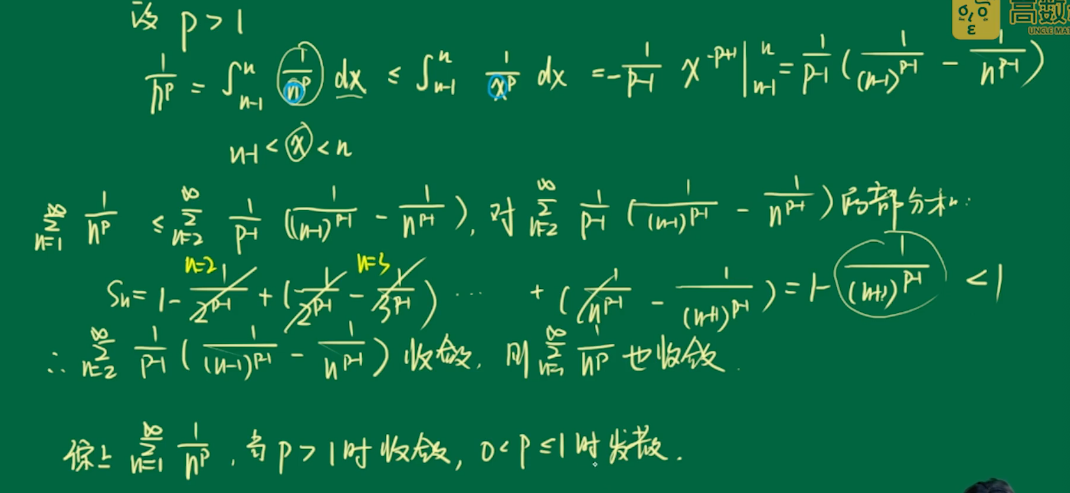 设 p > 1
高数
UNCLE MA
1/n^p = ∫_{n-1}^{n} 1/n^p dx ≤ ∫_{n-1}^{n} 1/x^p dx = -1/(p-1) x^{-p+1} |_{n-1}^{n} = 1/(p-1) (1/(n-1)^{p-1} - 1/n^{p-1})
n-1 < x < n
∑_{n=1}^{∞} 1/n^p ≤ ∑_{n=2}^{∞} 1/(p-1) (1/(n-1)^{p-1} - 1/n^{p-1}), 对 ∑_{n=2}^{∞} 1/(p-1) (1/(n-1)^{p-1} - 1/n^{p-1}) 部分和:
n=2 n=3
Sn = 1 - 1/2^{p-1} + (1/2^{p-1} - 1/3^{p-1}) ... + (1/n^{p-1} - 1/(n+1)^{p-1}) = 1 - 1/(n+1)^{p-1} < 1
∴ ∑_{n=2}^{∞} 1/(p-1) (1/(n-1)^{p-1} - 1/n^{p-1}) 收敛, 则 ∑_{n=1}^{∞} 1/n^p 也收敛.
综上 ∑_{n=1}^{∞} 1/n^p, 当 p > 1 时收敛, 0 < p ≤ 1 时发散.